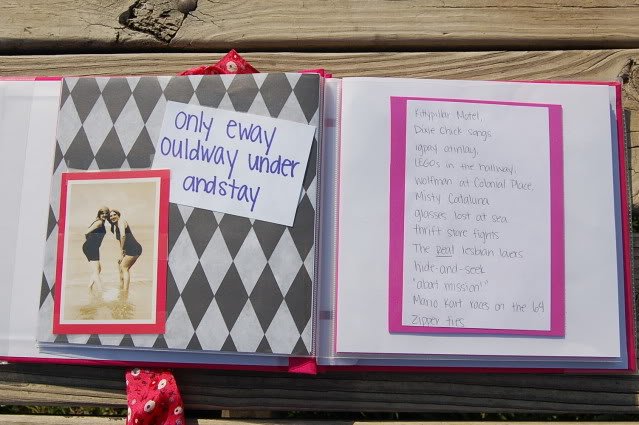 only eway
ouldway under
andstay
Kittypillar Motel,
Dixie Chick songs
igpay atinlay,
LEGOs in the hallway,
wolfman at Colonial Place.
Misty Cataluna
glasses lost at sea
thrift store fights
The real lesbian lovers
hide-and-seek
"abort mission!"
Mario Kart races on the 64
Zipper ties